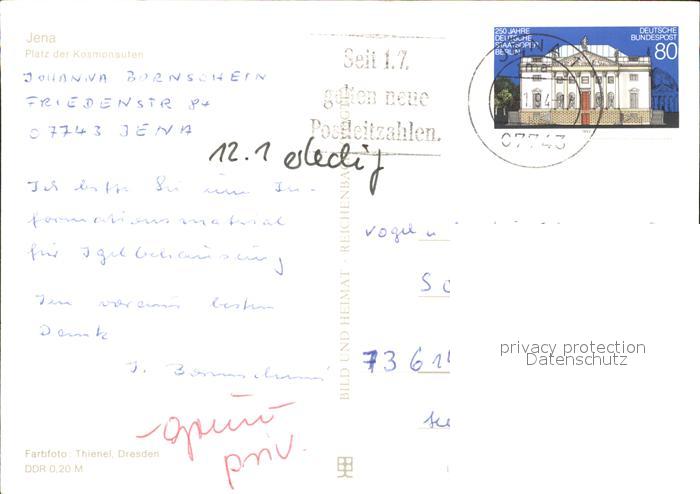 Jena
Platz der Kosmonauten
JOHANNA BORNSCHEIN
FRIEDENSTR 84
07743 JENA
Seit 1.7.
gelten neue
Postleitzahlen.
250 JAHRE
DEUTSCHE
STAATSOPER
BERLIN
DEUTSCHE
BUNDESPOST
80
JENA
07743
12.1 erledigt
Ich bitte Sie um In-
formationsmaterial
für Igelbehausung
Im voraus besten
Dank
J. Bornschein
Vogel u
73614
priv.
BILD UND HEIMAT · REICHENBACH
privacy protection
Datenschutz
Farbfoto: Thienel, Dresden
DDR 0,20 M